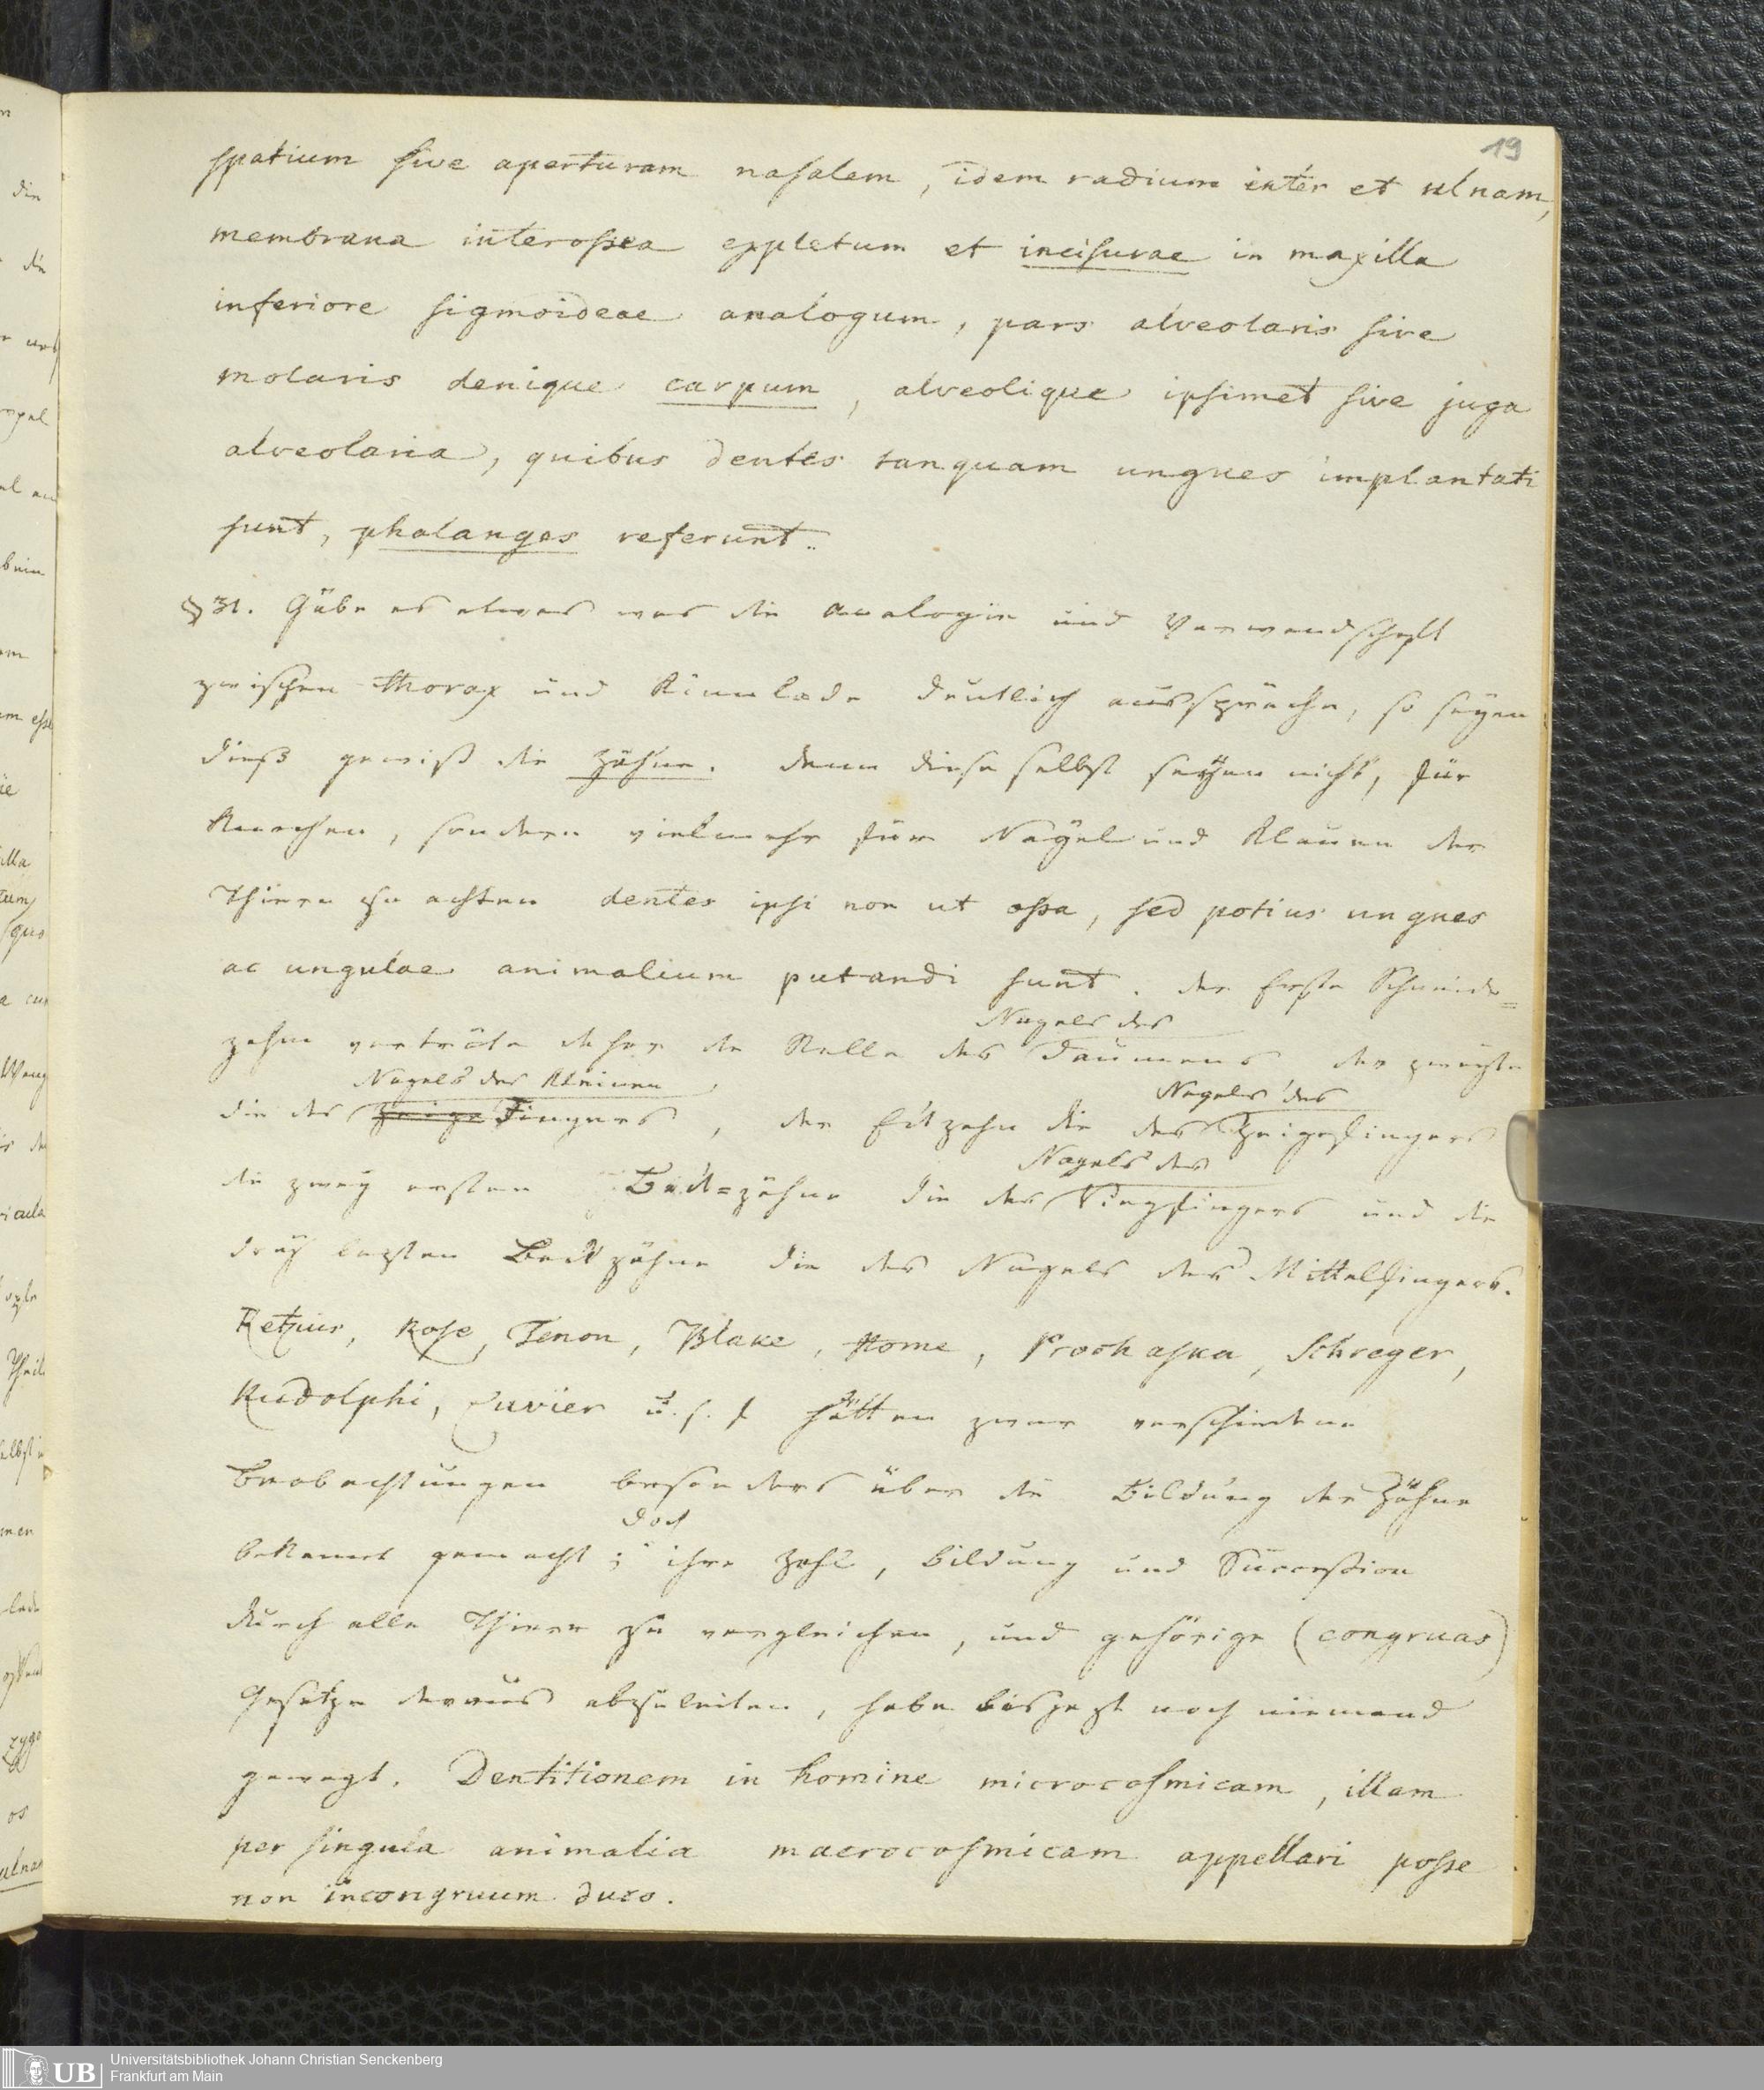 19
spatium sive aperturam nasalem, idem radium inter et ulnam,
membrana interossea expletum et incisurae in maxilla
inferiore sigmoideae analogum, pars alveolaris sive
molaris denique carpum, alveolique ipsimet sive juga
alveolaria, quibus dentes tanquam ungues implantati
sunt, phalanges referunt.
§ 31. Gäbe es etwas was die Analogie und Verwandschaft
zwischen Thorax und Kinnlade deutlich ausspräche, so seyen
dieß gewiß die Zähne. denn diese selbst seyen nicht, für
Knochen, sondern vielmehr für Nägel und Klauen der
Thiere zu achten dentes ipsi non ut ossa, sed potius ungues
ac ungulae animalium putandi sunt. der erste Schneide=
Nagels des
zahn verträte daher die Stelle des Daumens der zweyte
Nagels des Kleinen
die des Zeige Fingers, der Eckzahn die des Zeigefingers
Nagels des
Nagels des
die zwey ersten Back=zähne die des Ringfingers und die
drey lezten Backzähne die des Nagels des Mittelfingers.
Retzius, Rose, Tenon, Blake, Home, Prochaska, Schreger,
Rudolphi, Cuvier u. s. f hätten zwar verschiedene
Beobachtungen besonders über die Bildung der Zähne
doch
bekannt gemacht; ihre Zahl, Bildung und Succession
durch alle Thiere zu vergleichen, und gehörige (congruas)
Gesetze daraus abzuleiten, habe bisjezt noch niemand
gewagt. Dentitionem in homine microcosmicam, illam
per singula animalia macrocosmicam appellari posse
non incongruum duco.
UB
Universitätsbibliothek Johann Christian Senckenberg
Frankfurt am Main